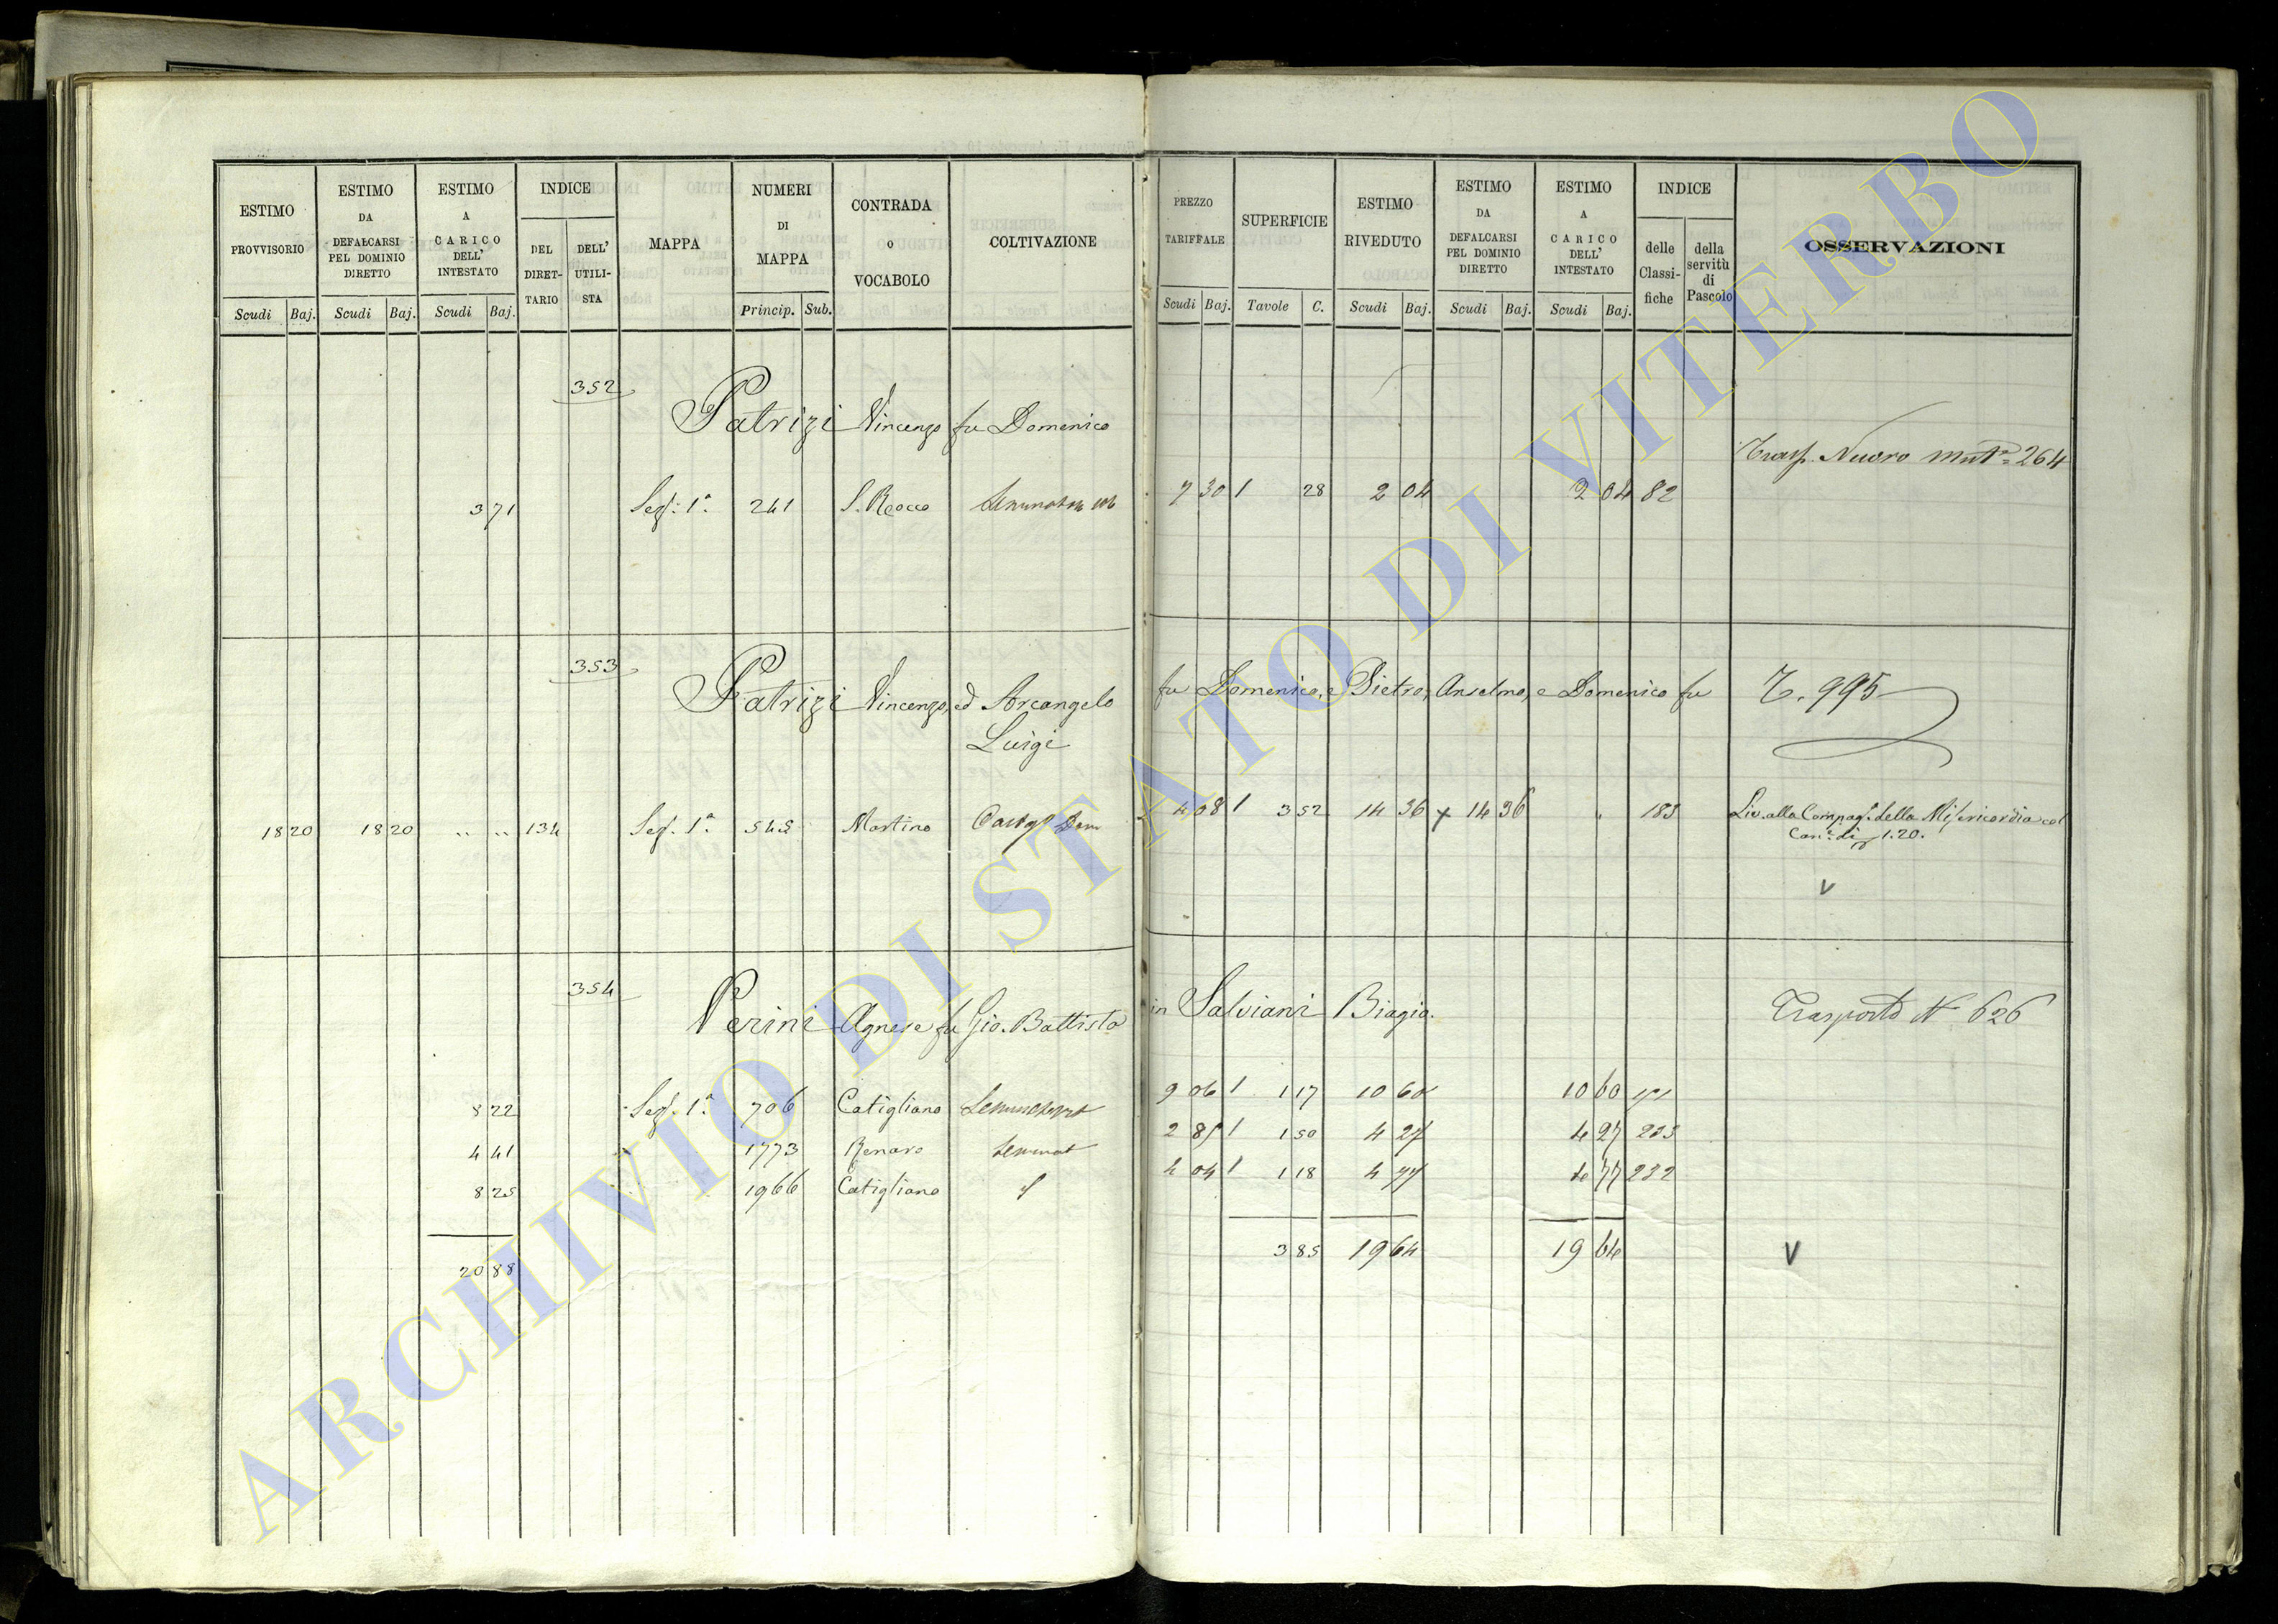 ESTIMO PROVVISORIO
ESTIMO DA DEFALCARSI PEL DOMINIO DIRETTO
ESTIMO A CARICO DELL' INTESTATO
INDICE
DEL DIRET-TARIO
DELL' UTILI-STA
MAPPA
NUMERI DI MAPPA
CONTRADA O VOCABOLO
COLTIVAZIONE
Scudi Baj. Scudi Baj. Scudi Baj. Princip. Sub.
PREZZO TARIFFALE
SUPERFICIE
ESTIMO RIVEDUTO
ESTIMO DA DEFALCARSI PEL DOMINIO DIRETTO
ESTIMO A CARICO DELL' INTESTATO
INDICE
delle Classi-fiche
della servitù di Pascolo
OSSERVAZIONI
Scudi Baj. Tavole C. Scudi Baj. Scudi Baj. Scudi Baj.
352
Patrizi Vincenzo fu Domenico
Trasp. Nuovo mut.ª 264
3 71 Sez. 1ª 241 S. Rocco 7 30 1 28 2 04 2 04 82
353
Patrizi Vincenzo, ed Arcangelo fu Domenico, e Pietro, Anselmo, e Domenico fu T. 995
Luigi
18 20 18 20 " " 134 Sez. 1ª 545 Martino 4 08 1 3 52 14 36 14 36 183 Liv. alla Compag. della Misericordia col
Can.e di 1.20.
V
354
Perini Agnese fu Gio. Battista in Salviani Biagio. Trasporto N 626
8 22 Sez. 1ª 706 Catigliano 9 06 1 1 17 10 60 10 60
4 41 1773 Renaro Seminat 2 85 1 1 50 4 27 4 27 203
8 25 1966 Catigliano 4 04 1 1 18 4 77 4 77 232
20 88 3 85 19 64 19 64 V
ARCHIVIO DI STATO DI VITERBO